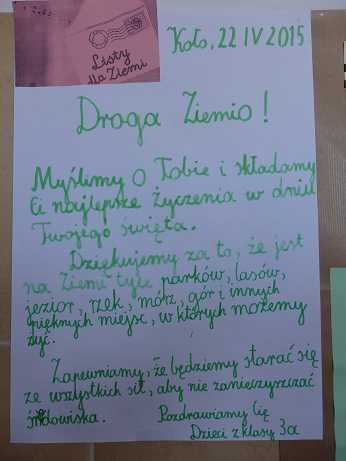 Listy
dla Ziemi
Koło, 22 IV 2015
Droga Ziemio!
Myślimy o Tobie i składamy
Ci najlepsze życzenia w dniu
Twojego święta.
Dziękujemy za to, że jest
na Ziemi tyle parków, lasów,
jezior, rzek, mórz, gór i innych
pięknych miejsc, w których możemy
żyć.
Zapewniamy, że będziemy starać się
ze wszystkich sił, aby nie zanieczyszczać
środowiska.
Pozdrawiamy Cię
Dzieci z klasy 3a